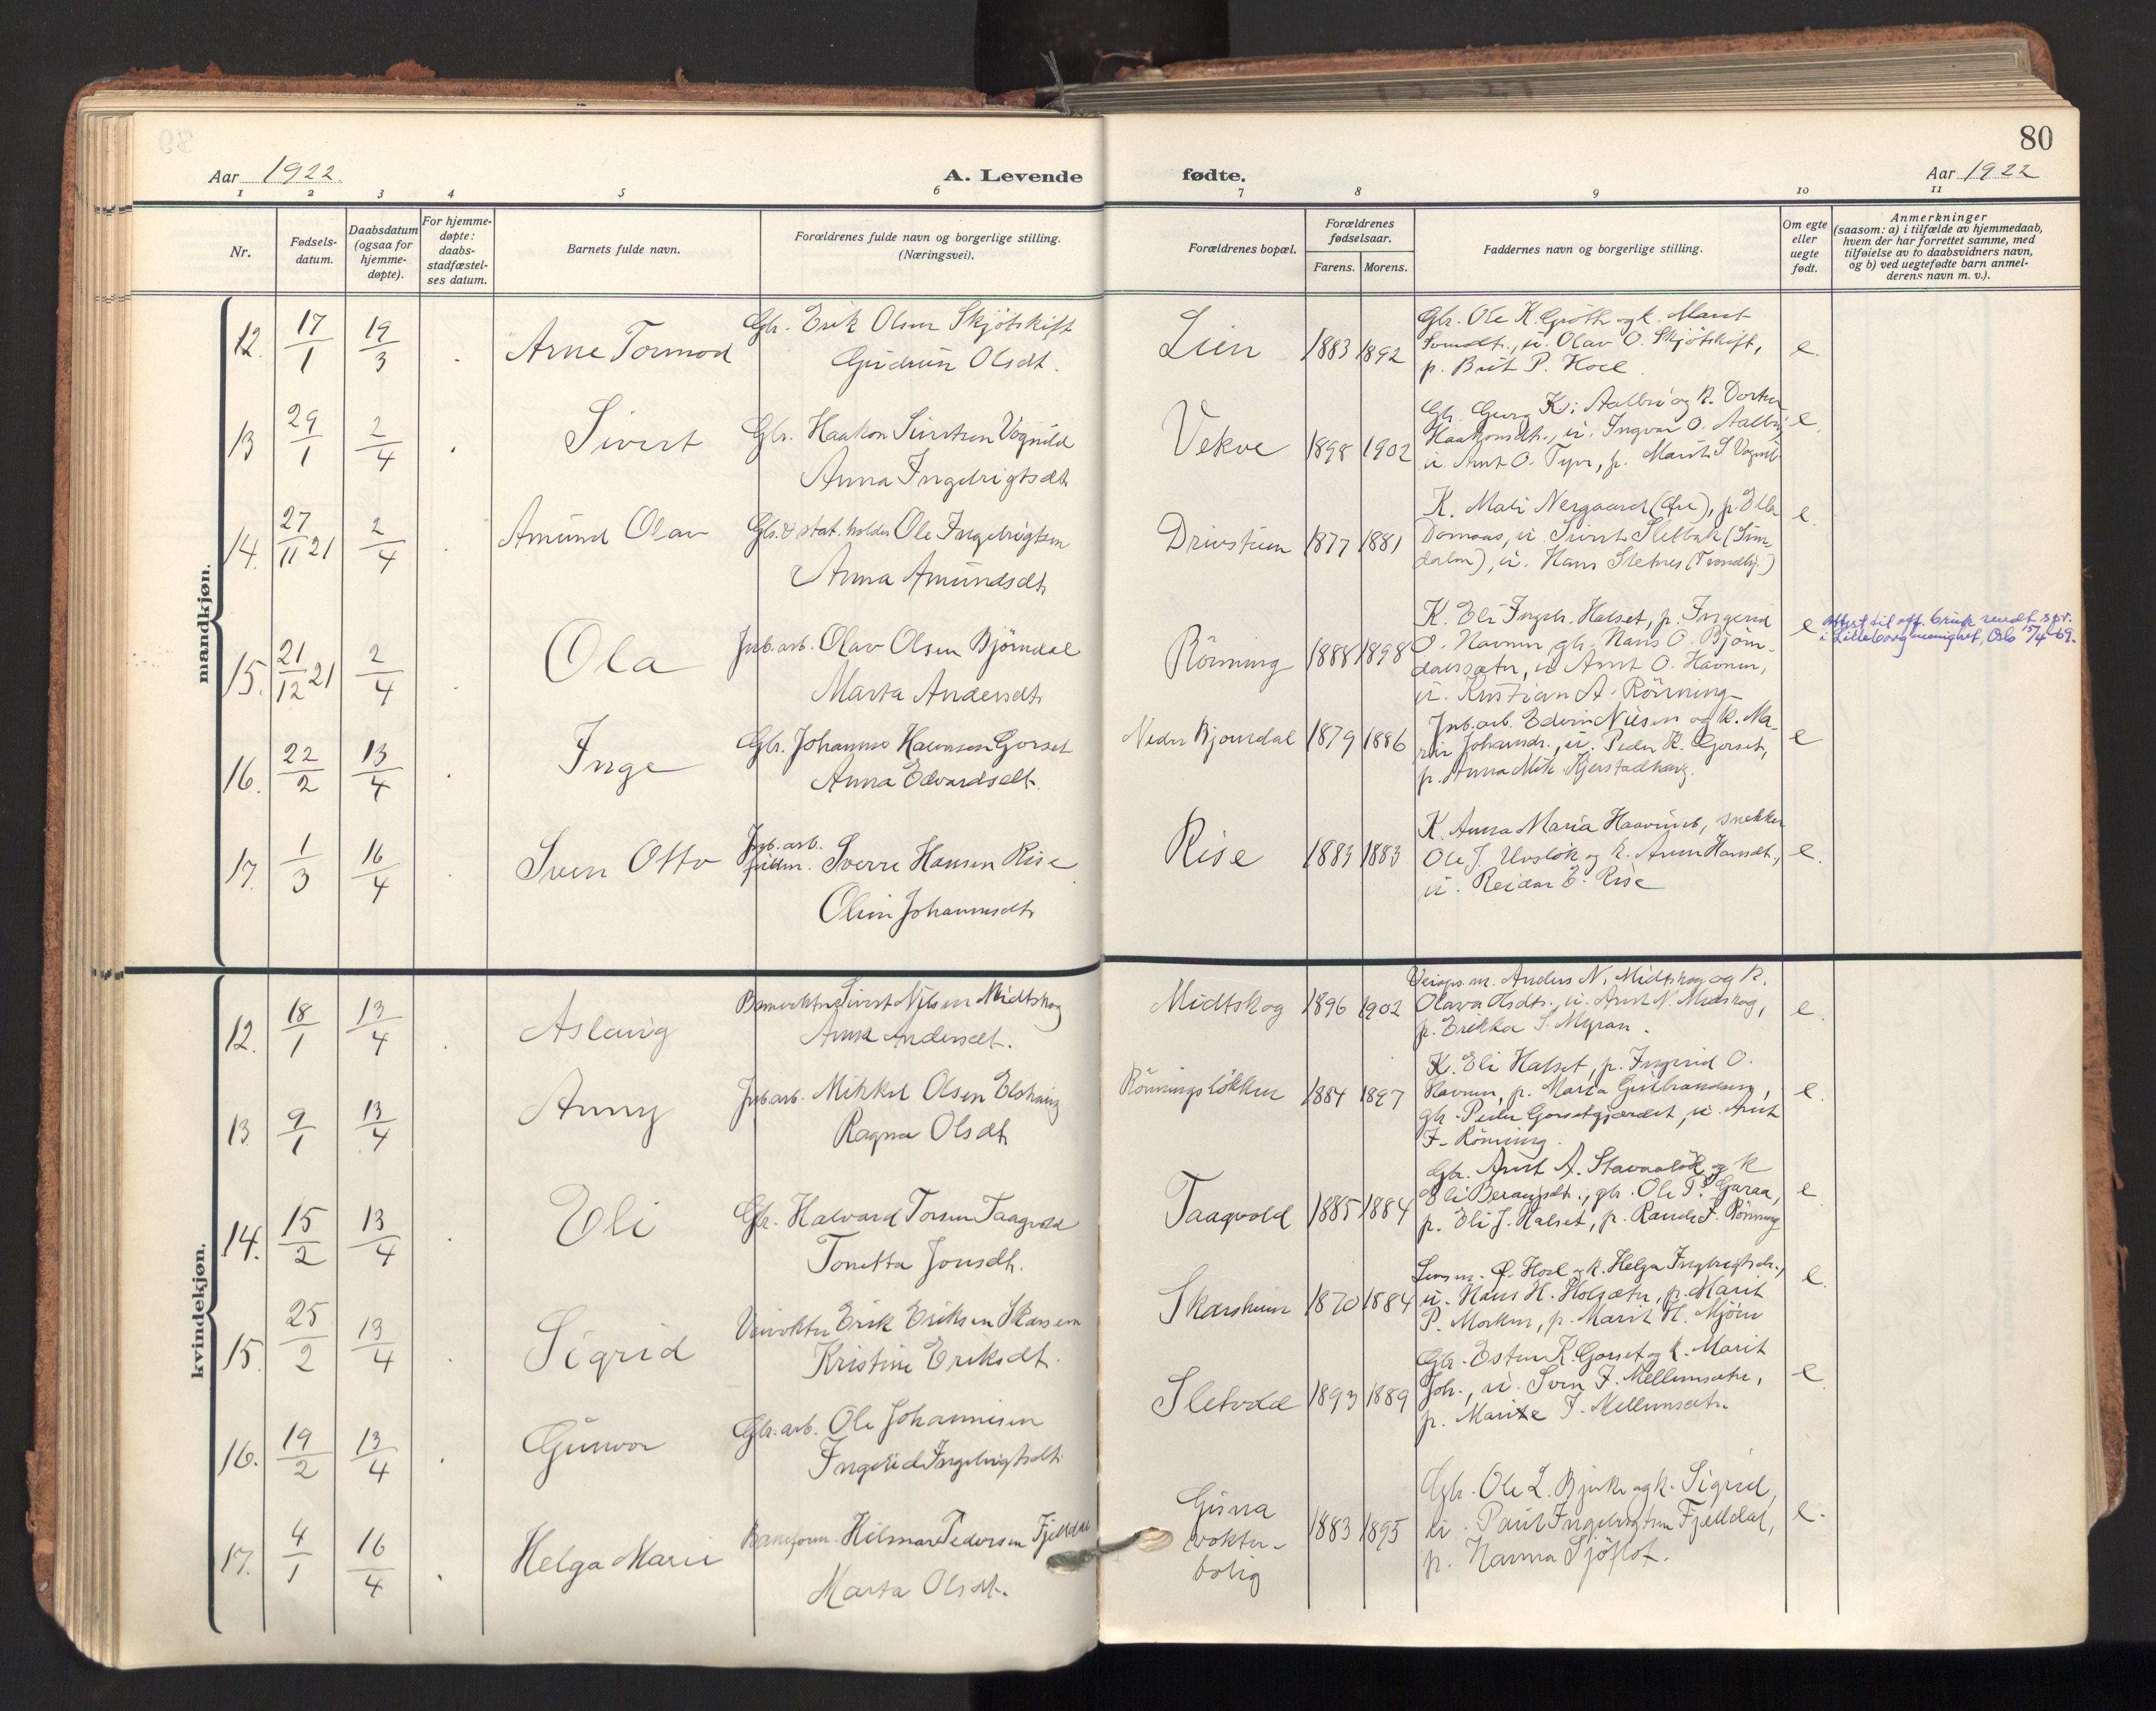 80
Aar 1922.
A. Levende
fødte.
Aar 1922
1 2 3 4 5 6 7 8 9 10 11
Nr.
Fødsels-
datum.
Daabsdatum
(ogsaa for
hjemme-
døpte).
For hjemme-
døpte:
daabs-
stadfæstel-
ses datum.
Barnets fulde navn.
Forældrenes fulde navn og borgerlige stilling.
(Næringsvei).
Forældrenes bopæl.
Forældrenes
fødselsaar.
Farens. Morens.
Faddernes navn og borgerlige stilling.
Om egte
eller
uegte
født.
Anmerkninger
(saasom: a) i tilfælde av hjemmedaab,
hvem der har forrettet samme, med
tilføielse av to daabsvidners navn,
og b) ved uegtefødte barn anmel-
derens navn m. v.).
mandkjøn.
12. 17/1 19/3 Arne Tormod
Gbr. Erik Olsen Skjøtskift
Gudrun Olsdt.
Lien 1883 1892
Gbr. Ole K. Grøtte og k. Marit
u. Olav O. Skjøtskift,
p. Brit P. Hoel.
e.
13 29/1 2/4 Sivert
Gbr. Haakon Sivertsen Vognild
Anna Ingebrigtsdt.
Vekve 1898 1902
Gbr. Georg K. Aalbu og k. Dorthea
Haakonsdt., u. Ingvar O. Aalbu,
u. Arnt O. p. Marit S. Vognild
e.
14. 27/11 21 2/4 Amund Olav
Gbr. & stat. holder Ole Ingebrigtsen
Anna Amundsdt.
Drivstuen 1877 1881
K. Mali Nergaard p. Ella
Domaas, u. Sivert Sletbak
u. Hans Sletnes (Trondhj.)
e.
15. 21/12 21 2/4 Ola
Jnb. arb. Olav Olsen Bjørndal
Marta Andersdt.
Rönning 1888 1898
K. Eli Ingebr. Halset, p. Ingerid
O. Havnen, gbr. Hans O. Bjørn-
dalssæter, u. Arnt O. Havnen,
u. Kristian A. Rönning
e
Attest til off. bruk sendt
i Lilleborg menighet, Oslo 15/4-69.
16. 22/2 13/4 Inge
Gbr. Johannes Halvorsen Gorset
Anna Edvardsdt.
Nedre Bjørndal 1879 1886
Jnb. arb. Edvin Nilsen og k. Ma-
rie Johansdt., u. Peder K. Gorset,
p. Anna Mik. Kjerstadhaug.
e
17. 1/3 16/4 Sven Otto
Jnb. arb.
Sverre Hansen Rise
Oline Johannesdt.
Rise 1883 1883
K. Anna Maria Haavimb, snekker
Ole J. Uvsløk og k. Anne Hansdt.,
u. Reidar E. Rise
e.
kvindekjøn.
12. 18/1 13/4 Aslaug
Banevokter Sivert Nilsen Midtskog
Anna Andersdt.
Midtskog 1896 1902
Veiops.m. Anders N. Midtskog og k.
Olava Olsdt., u. Arnt N. Midtskog,
p. Erikka S. Myran.
e.
13. 9/1 13/4 Anny
Jnb arb. Mikkel Olsen Elshaug
Ragna Olsdt.
Rönningsløkken 1884 1897
K. Eli Halset, p. Ingerid O.
Havnen, p. Marta Gulbrandseng,
gbr. Peder Gorsetgjærdet, u. Arnt
F. Rönning.
e.
14. 15/2 13/4 Eli
Gbr. Halvard Torsen Taagvold
Tonetta Jonsdt.
Taagvold 1885 1884
Gbr. Arnt A. Stavaaløk og k
Eli Beraugsdt., gbr. Ole T. Garaa,
p. Eli J. Halset, p. Randi F. Rönning
e
15. 25/2 13/4 Sigrid
Veivokter Erik Eriksen Skarsem
Kristine Eriksdt.
Skarsheim 1870 1884
Lensm. Hoel og k. Helga Ingebrigtsdt.,
u. Hans H. Holsæter, p. Marit
P. Morken, p. Marit H. Mjøen
e.
16. 19/2 13/4 Gunvor
Gbr. arb. Ole Johannesen
Ingerid Ingebrigtsdt.
Sletvold 1893 1889
Gbr. Esten K. Gorset og k. Marit
Joh., u. Sven F. Mellemsæter,
p. Marite F. Mellemsæter.
e.
17. 4/1 16/4 Helga Marie
Baneform. Hilmar Pedersen Fjelldal
Marta Olsdt.
Gisna
vokter-
bolig
1883 1895
Gbr. Ole L. Bjerke og k. Sigrid,
u. Paul Ingebrigtsen Fjelldal,
p. Hanna Sjøflot.
e.